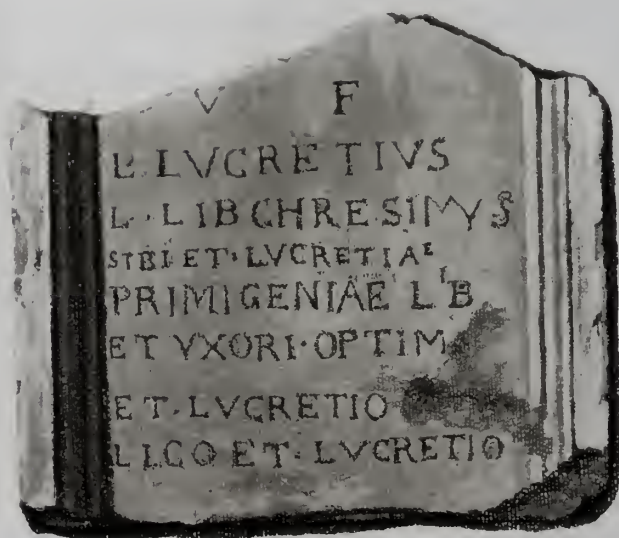 V F
L·LVCRETIVS
L·LIB CHRESIMVS
SIBI ET·LVCRETIAE
PRIMIGENIAE LIB
ET VXORI·OPTIM
ET·LVCRETIO
LICO ET·LVCRETIO